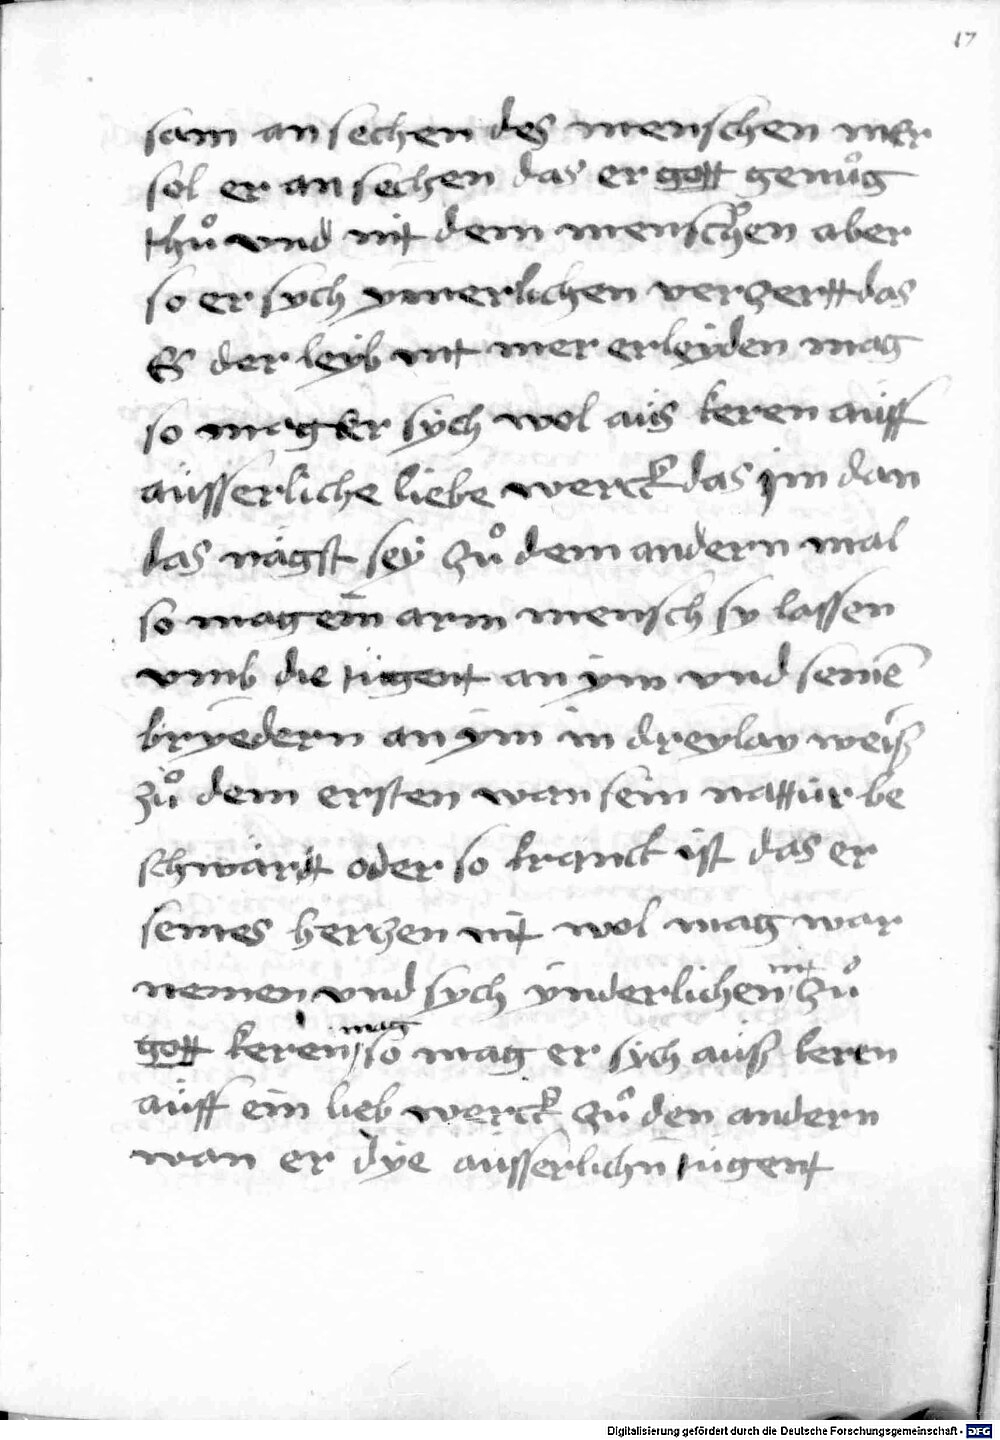 17
sam an sechen des menschen mer
sol er an sechen das er gott genuͦg
thuͦ vnd nit dem menschen aber
so er sych ynnerlichen verzertt das
Es der leÿb nit mer erleÿden mag
so mag er sÿch wol aüs keren aüff
aüsserliche liebe werck das im dan
das nägst seÿ zuͦ dem andern mal
so mag ein arm mensch sy lassen
vmb die tügent an ÿm vnd seinē
bryedern an ÿm in dreylay weiß
zuͦ dem ersten wan sein nattür be
schwärtt oder so kranck ist das er
seines herzen nit wol mag war
nemen vnd sych ÿnderlichen nit zuͦ
gott keren mag so mag er sÿch aüß keren
aüff ein lieb werck zuͦ den andern
wan er dÿe aüsserlichn tügent
Digitalisierung gefördert durch die Deutsche Forschungsgemeinschaft - DFG